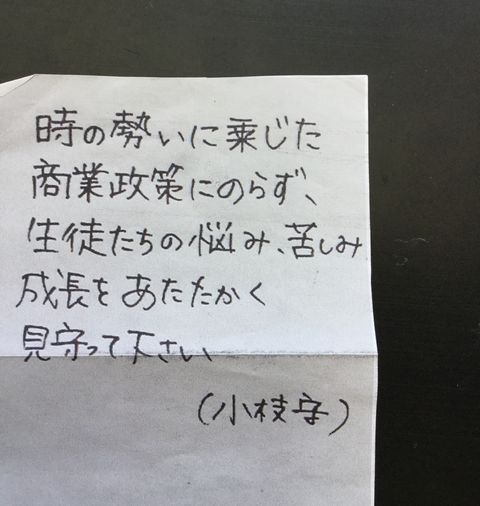 時の勢いに乗じた
商業政策にのらず、
生徒たちの悩み、苦しみ
成長をあたたかく
見守って下さい
(小枝守)